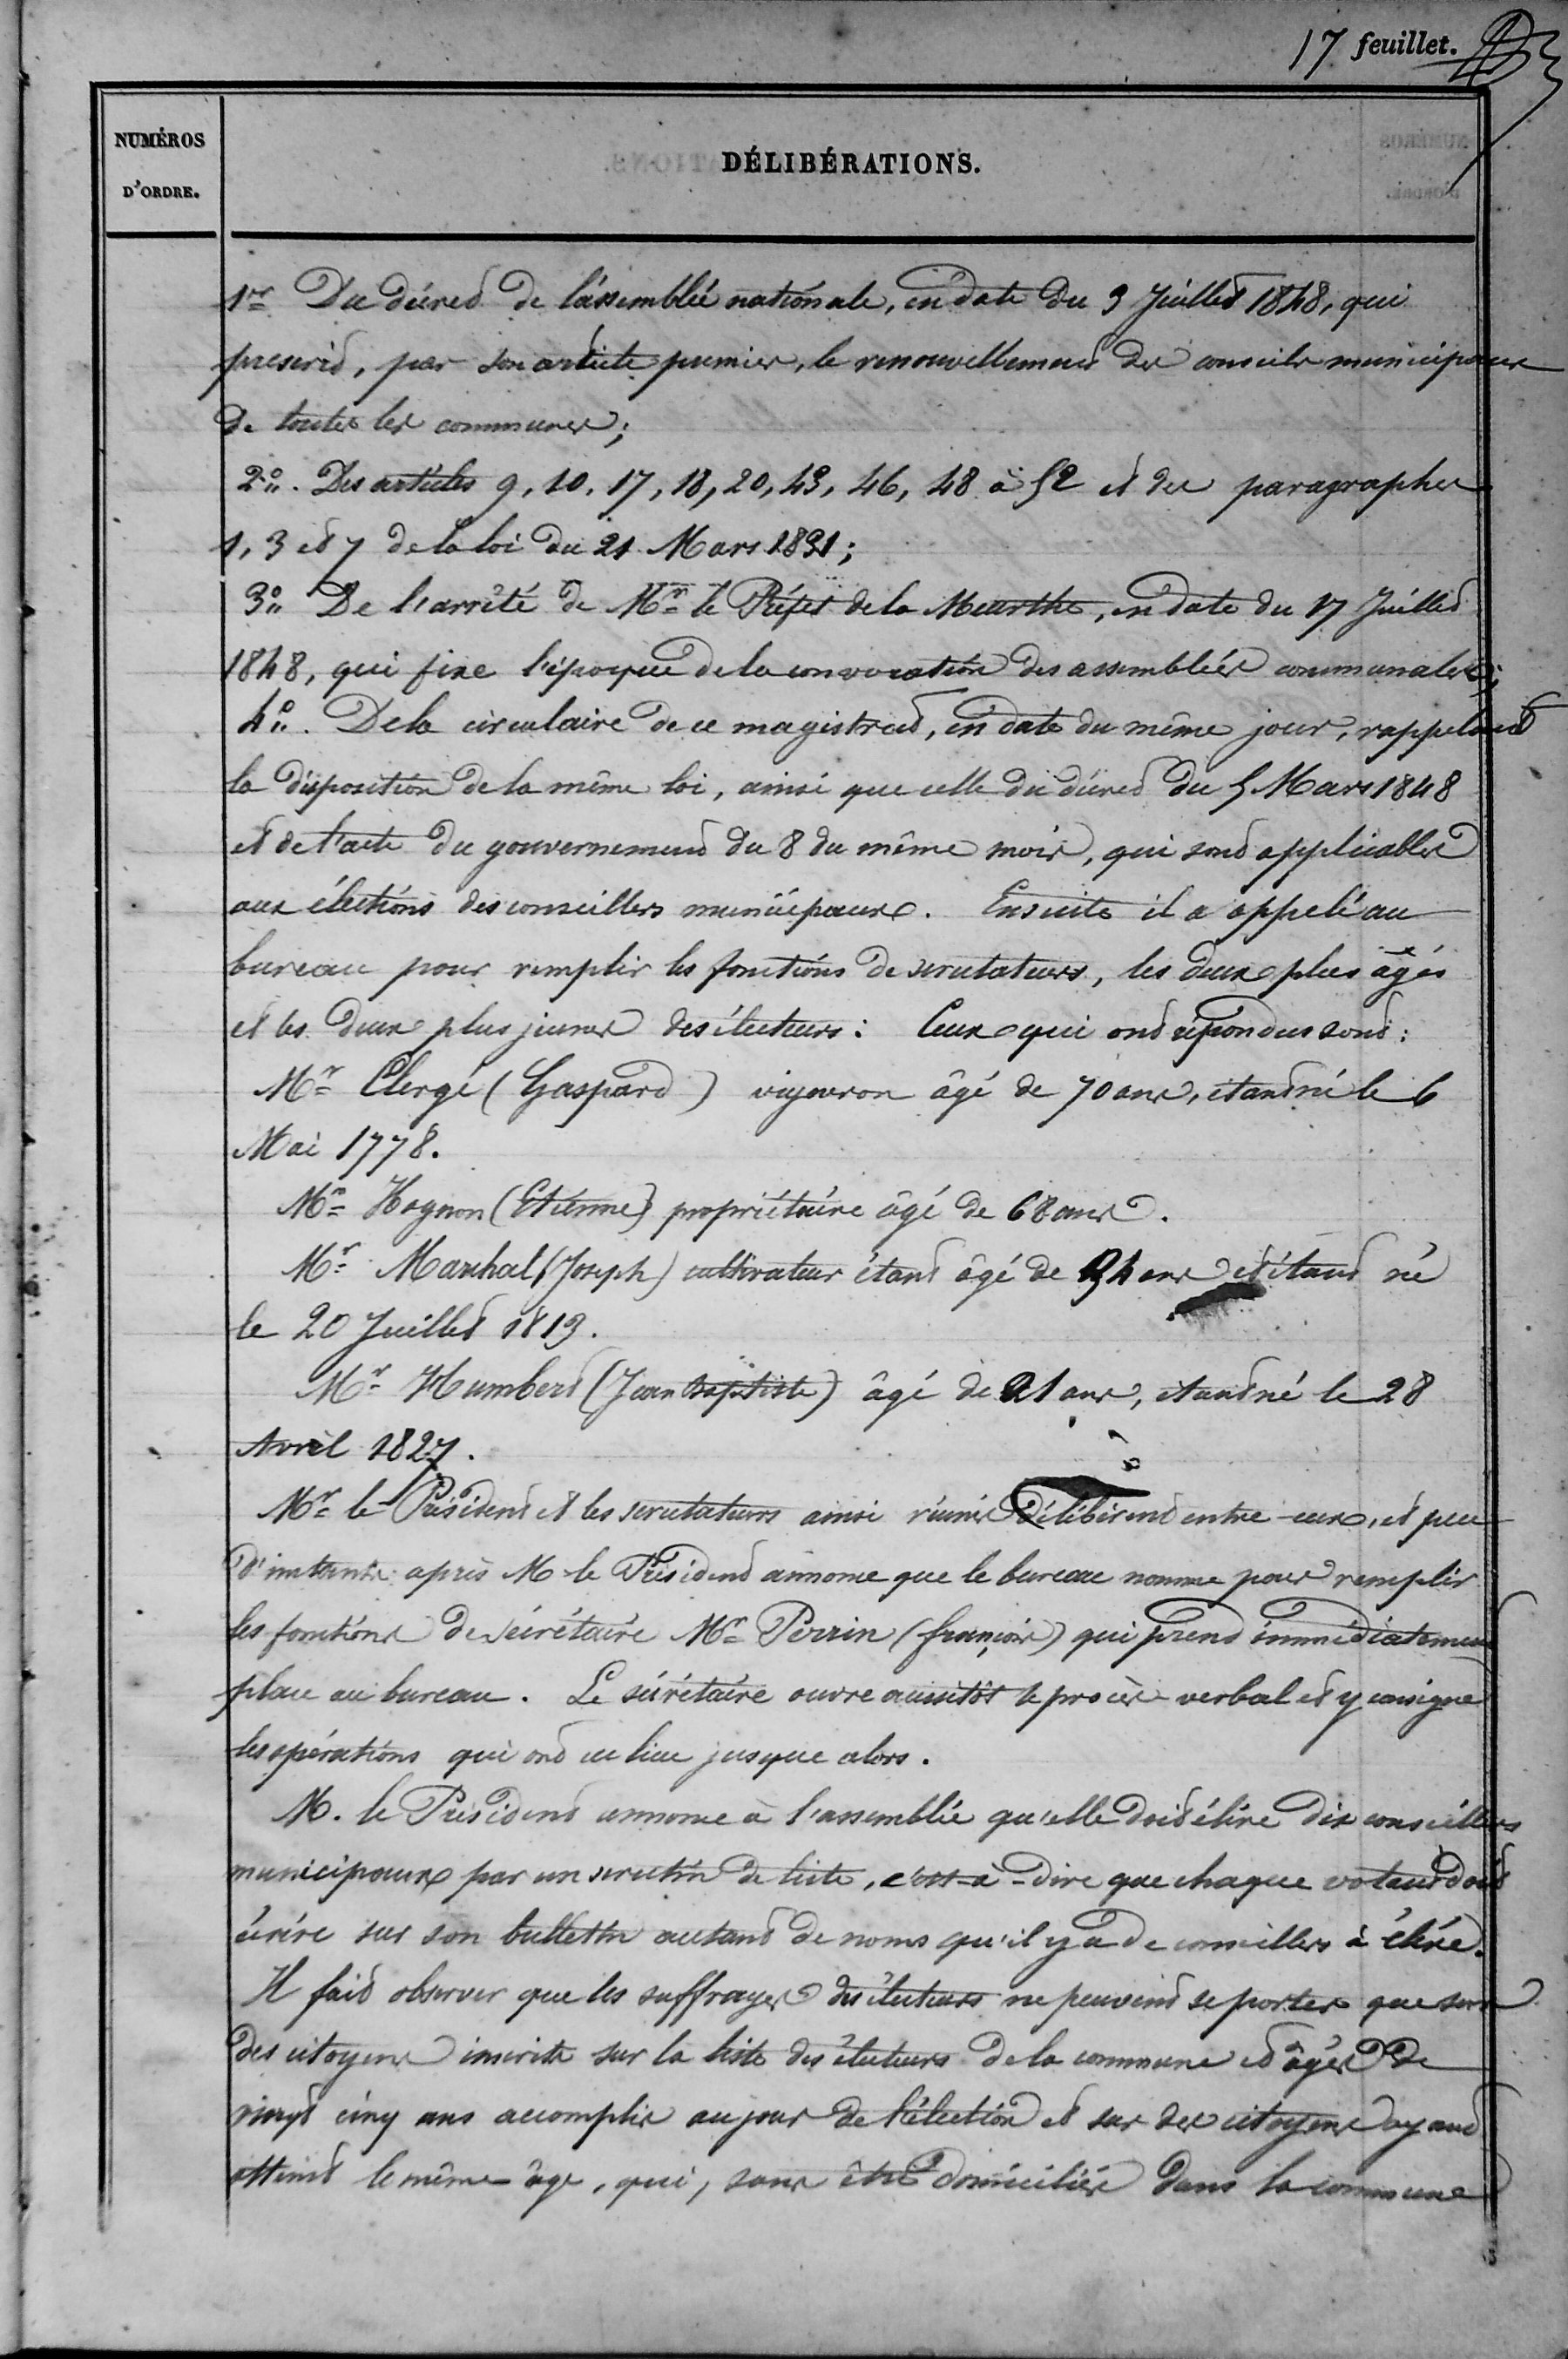 17 feuillet.
NUMÉROS
D'ORDRE.
DÉLIBÉRATIONS.
1er Du décret de l'assemblée nationale, en date du 3 Juillet 1848, qui
prescrit, par son article premier, le renouvellement des conseils municipaux
de toutes les communes;
2o. Des articles 9, 10, 17, 18, 20, 43, 46, 48 à 52 et des paragraphes
1, 3 et 7 de la loi du 21 Mars 1831;
3o De l'arrêté de Mr le Préfet de la Meurthe, en date du 17 Juillet
1848, qui fixe l'époque de la convocation des assemblées communales;
4o. De la circulaire de ce magistrat, en date du même jour, rappelant
la disposition de la même loi, ainsi que celle du décret du 5 Mars 1848
et de l'acte du gouvernement du 8 du même mois, qui sont applicables
aux élections des conseillers municipaux. Ensuite il a appelé au
bureau pour remplir les fonctions de scrutateurs, les deux plus âgés
et les deux plus jeunes des électeurs: Ceux qui ont répondus sont:
Mr Clergé (Gaspard) vigneron âgé de 70 ans, étant né le 6
Mai 1778.
Mr Hognon (Etienne) propriétaire âgé de 68 ans.
Mr Marchal (Joseph) cultivateur étant âgé de 34 ans et étant né
le 20 Juillet 1813.
Mr Humbert (Jean Baptiste) âgé de 21 ans, étant né le 28
Avril 1827.
Mr le Président et les scrutateurs ainsi réunis délibèrent entre eux, et peu
d'instants après M le Président annonce que le bureau nomme pour remplir
les fonctions de sécrétaire Mr Perrin (françois) qui prend immédiatement
place au bureau. Le sécrétaire ouvre aussitôt le procès-verbal et y consigne
les opérations qui ont eu lieu jusque alors.
M. le Président annonce à l'assemblée qu'elle doit élire dix conseillers
municipaux par un scrutin de liste, c'est-à-dire que chaque votant doit
écrire sur son bulletin autant de noms qu'il y a de conseillers à élire.
Il fait observer que les suffrages des électeurs ne peuvent se porter que sur
des citoyens inscrits sur la liste des électeurs de la commune et âgés de
vingt cinq ans accomplis au jour de l'élection et sur des citoyens ayant
atteint le même âge, qui, sans être domiciliés dans la commune